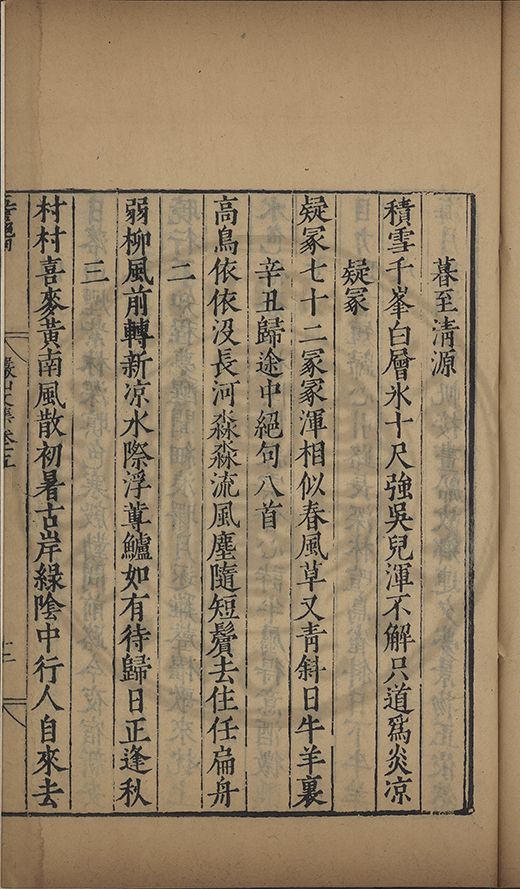 暮至清源
積雪千峯白層氷十尺強吳兒渾不解只道爲炎凉
疑冢
疑冢七十二冢冢渾相似春風草又靑斜日牛羊裏
辛丑歸途中絕句八首
高鳥依依没長河淼淼流風塵隨短鬢去住任扁舟
二
弱柳風前轉新凉水際浮蓴鱸如有待歸日正逢秋
三
村村喜麥黃南風散初暑古岸綠陰中行人自來去